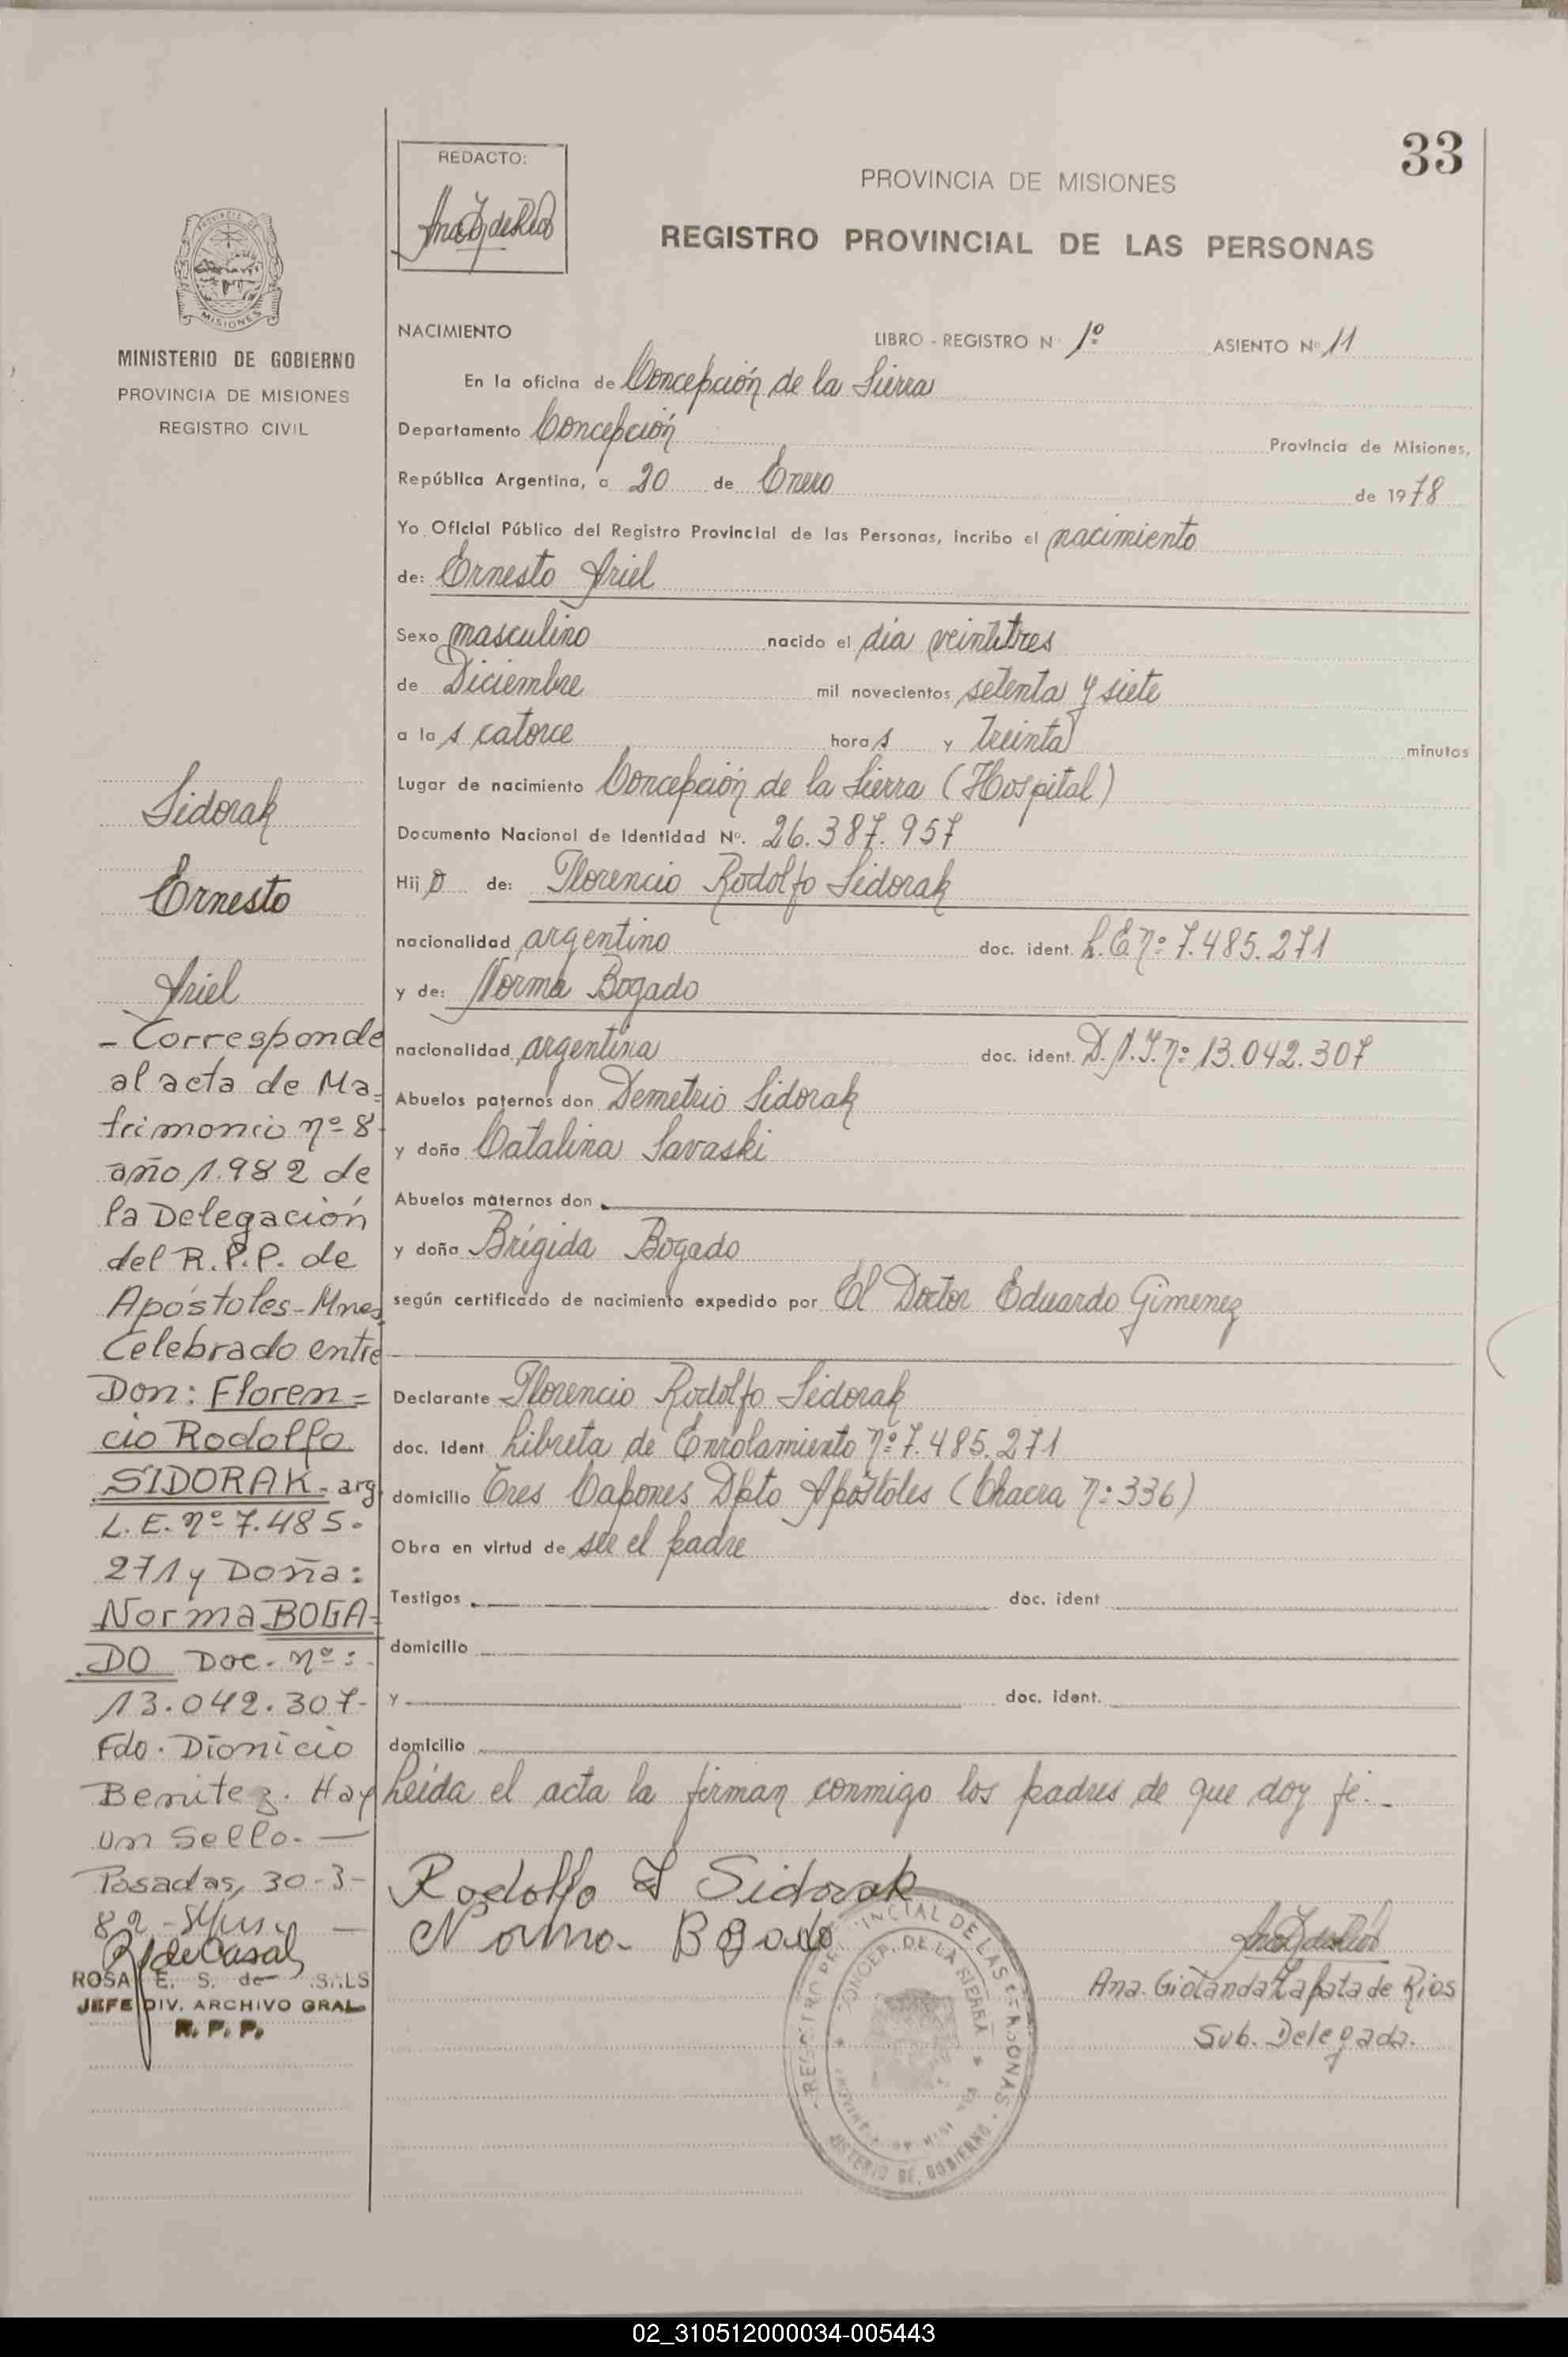 33
REDACTO:
PROVINCIA DE MISIONES
REGISTRO PROVINCIAL DE LAS PERSONAS
MISIONES
MINISTERIO DE GOBIERNO
PROVINCIA DE MISIONES
REGISTRO CIVIL
NACIMIENTO LIBRO - REGISTRO N 1º ASIENTO Nº 11
En la oficina de Concepción de la Sierra
Departamento Concepción Provincia de Misiones,
República Argentina, a 20 de Enero de 1978
Yo Oficial Público del Registro Provincial de las Personas, incribo el nacimiento
de: Ernesto Ariel
Sexo masculino nacido el día veintitres
de Diciembre mil novecientos setenta y siete
a las catorce horas y treinta minutos
Lugar de nacimiento Concepción de la Sierra (Hospital)
Documento Nacional de Identidad Nº. 26.387.957
Hijo de: Florencio Rodolfo Sidorak
nacionalidad argentino doc. ident. L.E. nº 7.485.271
y de: Norma Bogado
nacionalidad argentina doc. ident. D.N.I. nº 13.042.307
Abuelos paternos don Demetrio Sidorak
y doña Catalina Savaski
Abuelos maternos don
y doña Brígida Bogado
según certificado de nacimiento expedido por El Doctor Eduardo Gimenez
Declarante Florencio Rodolfo Sidorak
doc. Ident Libreta de Enrolamiento nº 7.485.271
domicilio Tres Capones Dpto Apóstoles (Chacra nº 336)
Obra en virtud de ser el padre
Testigos doc. ident
domicilio
y doc. ident.
domicilio
Leída el acta la firman conmigo los padres de que doy fé.-
Rodolfo F Sidorak
Norma Bogado
Ana Giolanda Zapata de Rios
Sub. Delegada.
REGISTRO PROVINCIAL DE LAS PERSONAS
CONCEP. DE LA SIERRA
MINISTERIO DE GOBIERNO
Sidorak
Ernesto
Ariel
- Corresponde
al acta de Ma=
trimonio nº 8
año 1.982 de
la Delegación
del R.P.P. de
Apóstoles-Mnes,
Celebrado entre
Don: Floren=
cio Rodolfo
SIDORAK- arg.
L.E. nº 7.485.
271 y Doña:
Norma BOGA-
DO Doc. nº:
13.042.307-
Fdo. Dionicio
Benitez. Hay
un Sello. —
Posadas, 30-3-
82 -
ROSA E. S. de
JEFE DIV. ARCHIVO GRAL
R. P. P.
02_310512000034-005443